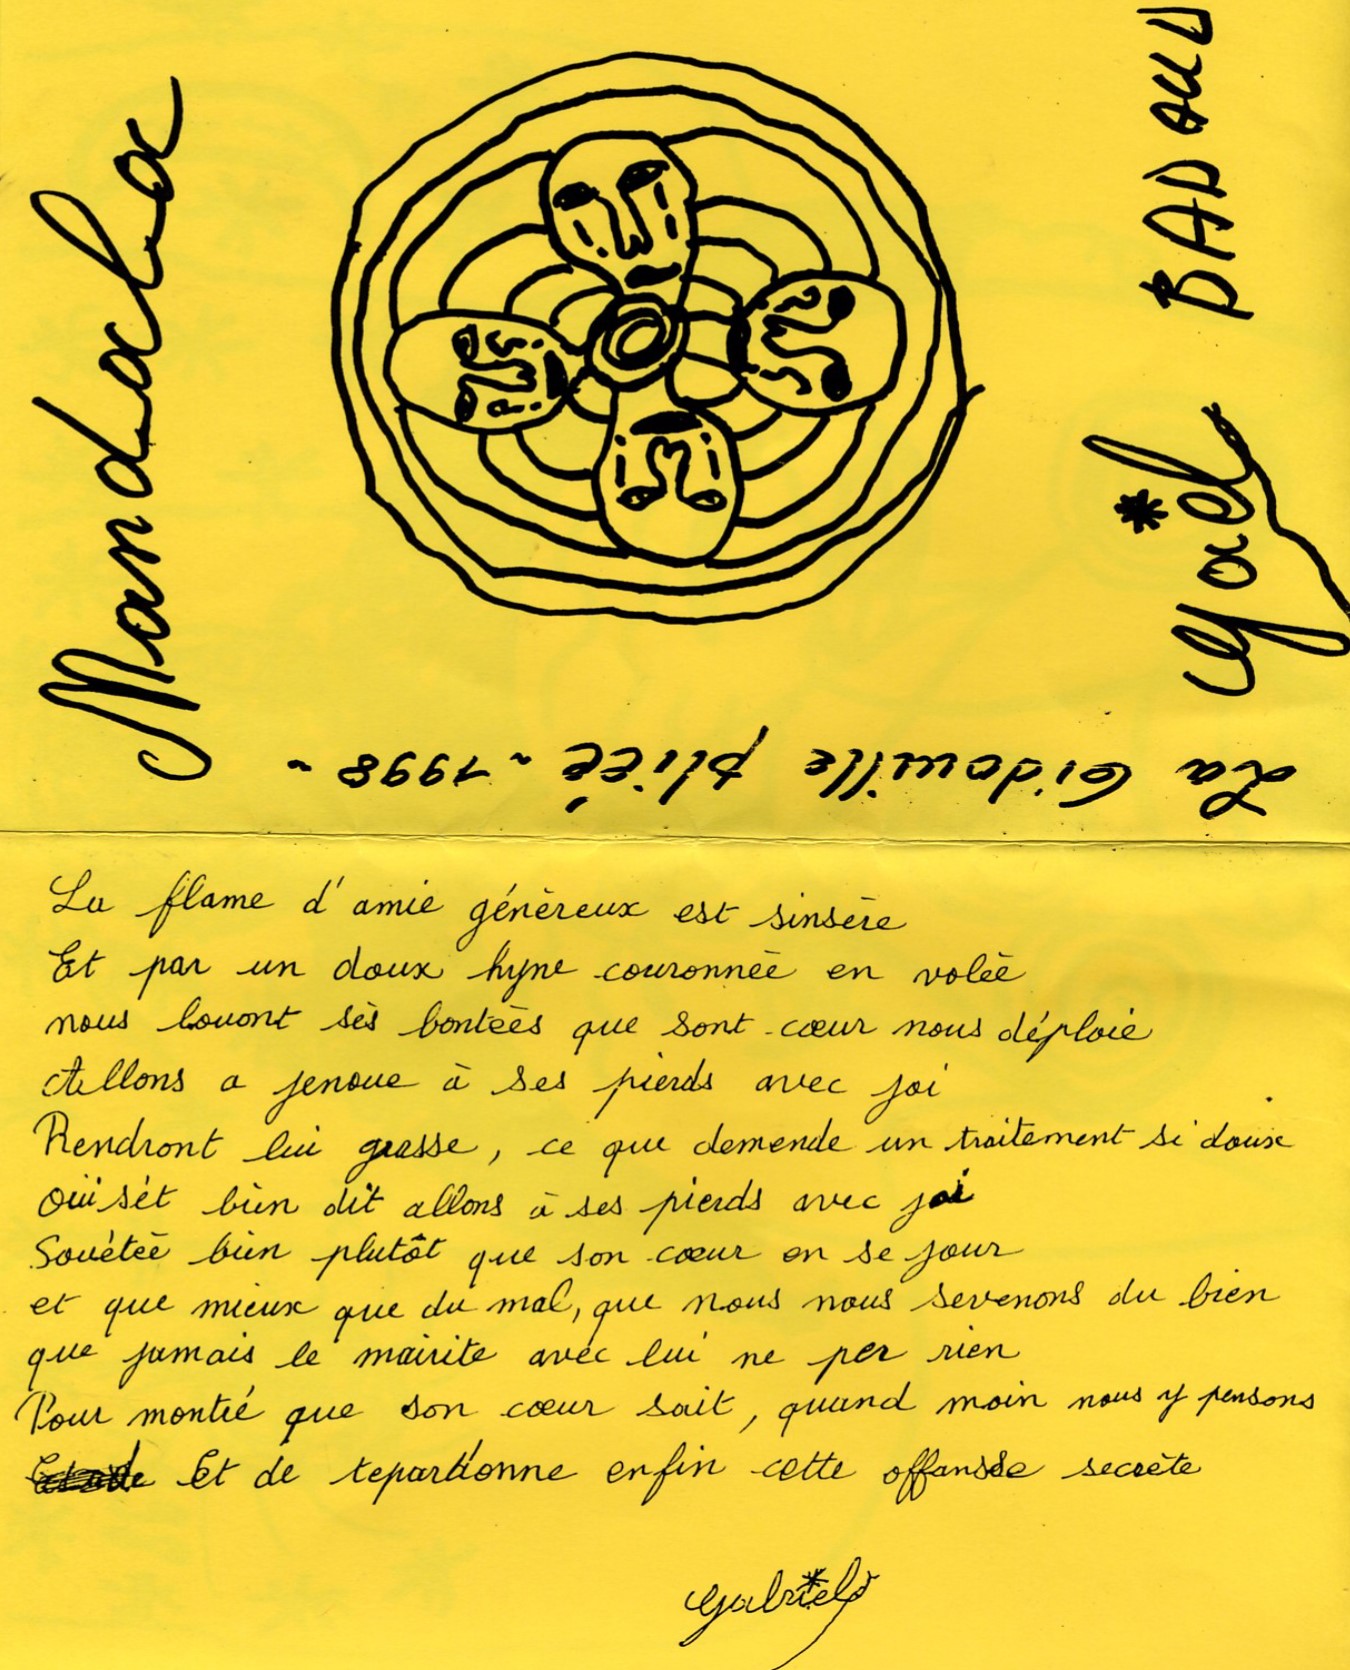 Mandala
Yaël BADAUD
La Gidouille pliée ~ 1998 ~
La flame d'amie généreux est sinsère
Et par un doux hyne couronnée en volée
nous louont sès bontéés que sont cœur nous déploie
Allons a jenoue à ses pierds avec joi
Rendront lui grasse, ce que demende un traitement si doux
Oui sét bien dit allons à ses pierds avec joi
Souétée bien plutôt que son cœur en se jour
et que mieux que du mal, que nous nous sevenons du bien
que jamais le mairite avec lui ne per rien
Pour montré que son cœur sait, quand moin nous y pensons
Et de tepardonne enfin cette offansse secrète
Gabriel